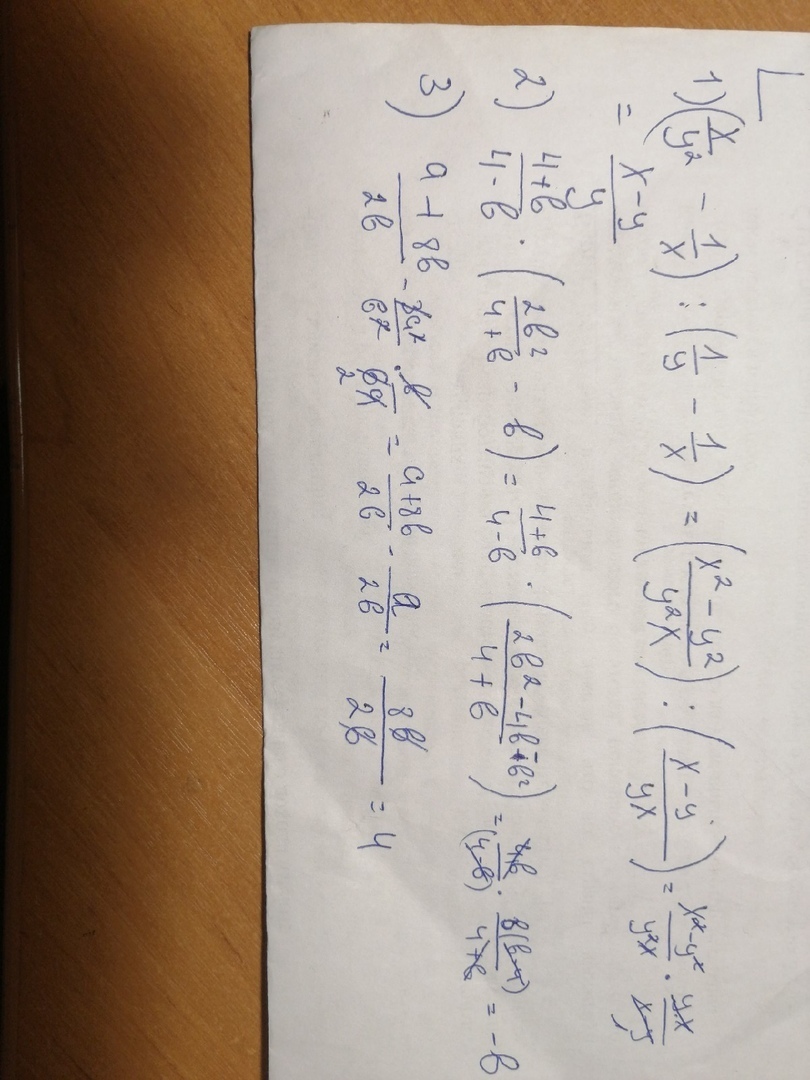 1) (x/y² - 1/x) : (1/y - 1/x) = (x² - y²/y²x) : (x - y/yx) = x² - y²/y²x · yx/x - y
= x - y/y
2) 4+b/4-b · (2b²/4+b - b) = 4+b/4-b · (2b² - 4b - b²/4+b) = 4+b/(4-b) · b(b-4)/4+b = -b
3) a + 8b/2b - a²/b² · b/2a = a+8b/2b - a/2b = 8b/2b = 4